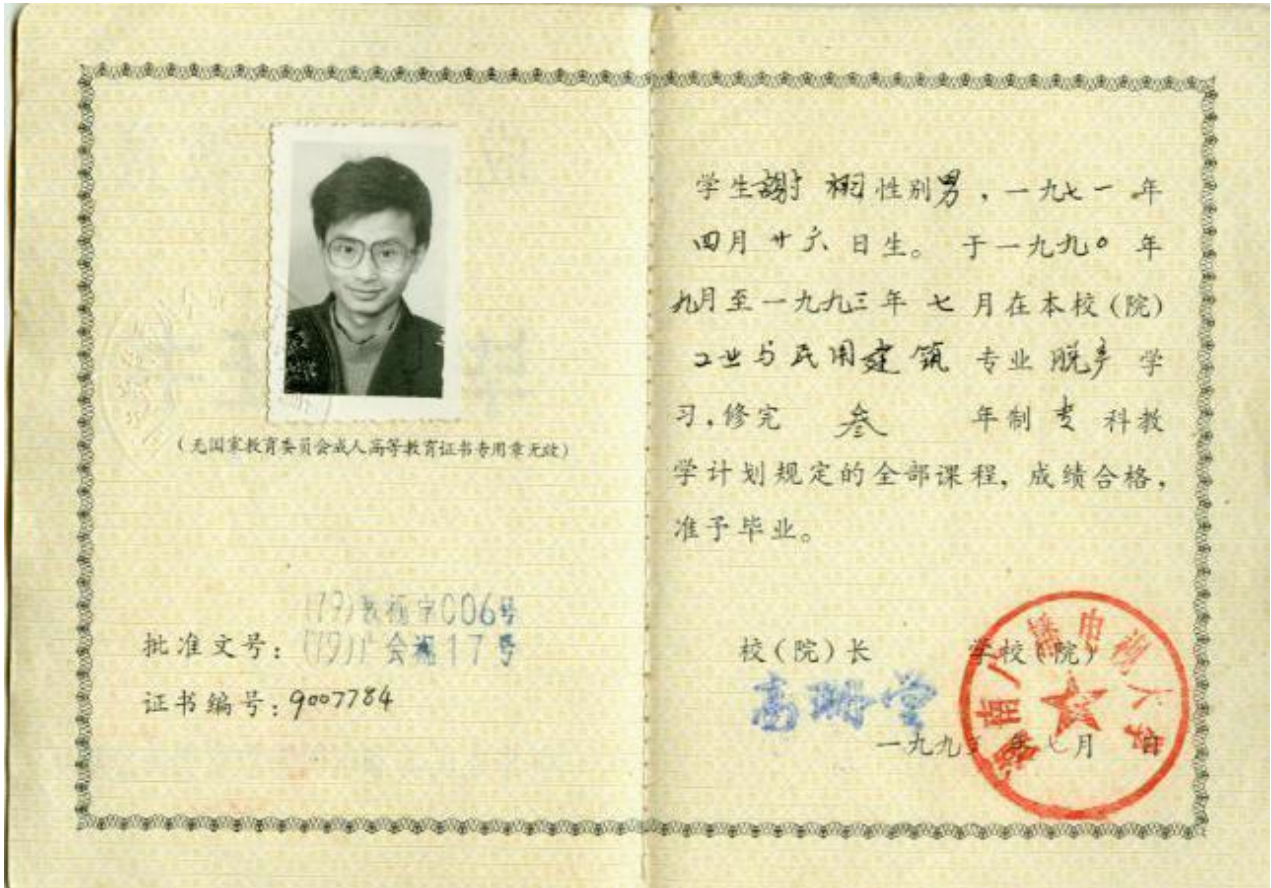 （无国家教育委员会成人高等教育证书专用章无效）
(79)教 字006号
批准文号： (79)广会 17号
证书编号：9007784
学生謝 栩 性别男，一九七一年
四月廿六日生。于一九九〇年
九月至一九九三年七月在本校（院）
工业与民用建筑 专业脱产学
习，修完 叁 年制专科教
学计划规定的全部课程，成绩合格，
准予毕业。
校（院）长 学校（院）
高 堂
一九九三年七月 日
湖南广播电视大学